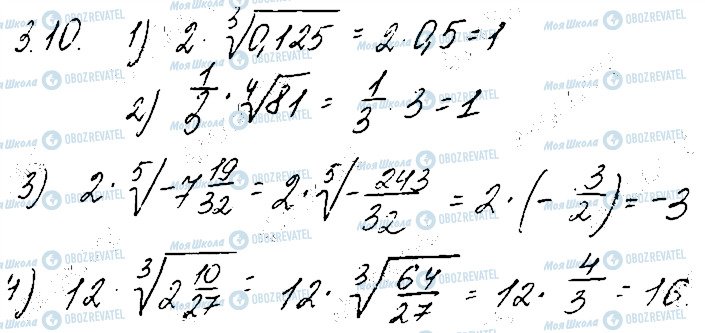 3.10. 1) 2 · ∛0,125 = 2 · 0,5 = 1
2) 1/3 · ∜81 = 1/3 · 3 = 1
3) 2 · ⁵√(-7 19/32) = 2 · ⁵√(-243/32) = 2 · (-3/2) = -3
4) 12 · ∛(2 10/27) = 12 · ∛(64/27) = 12 · 4/3 = 16.
Моя Школа OBOZREVATEL